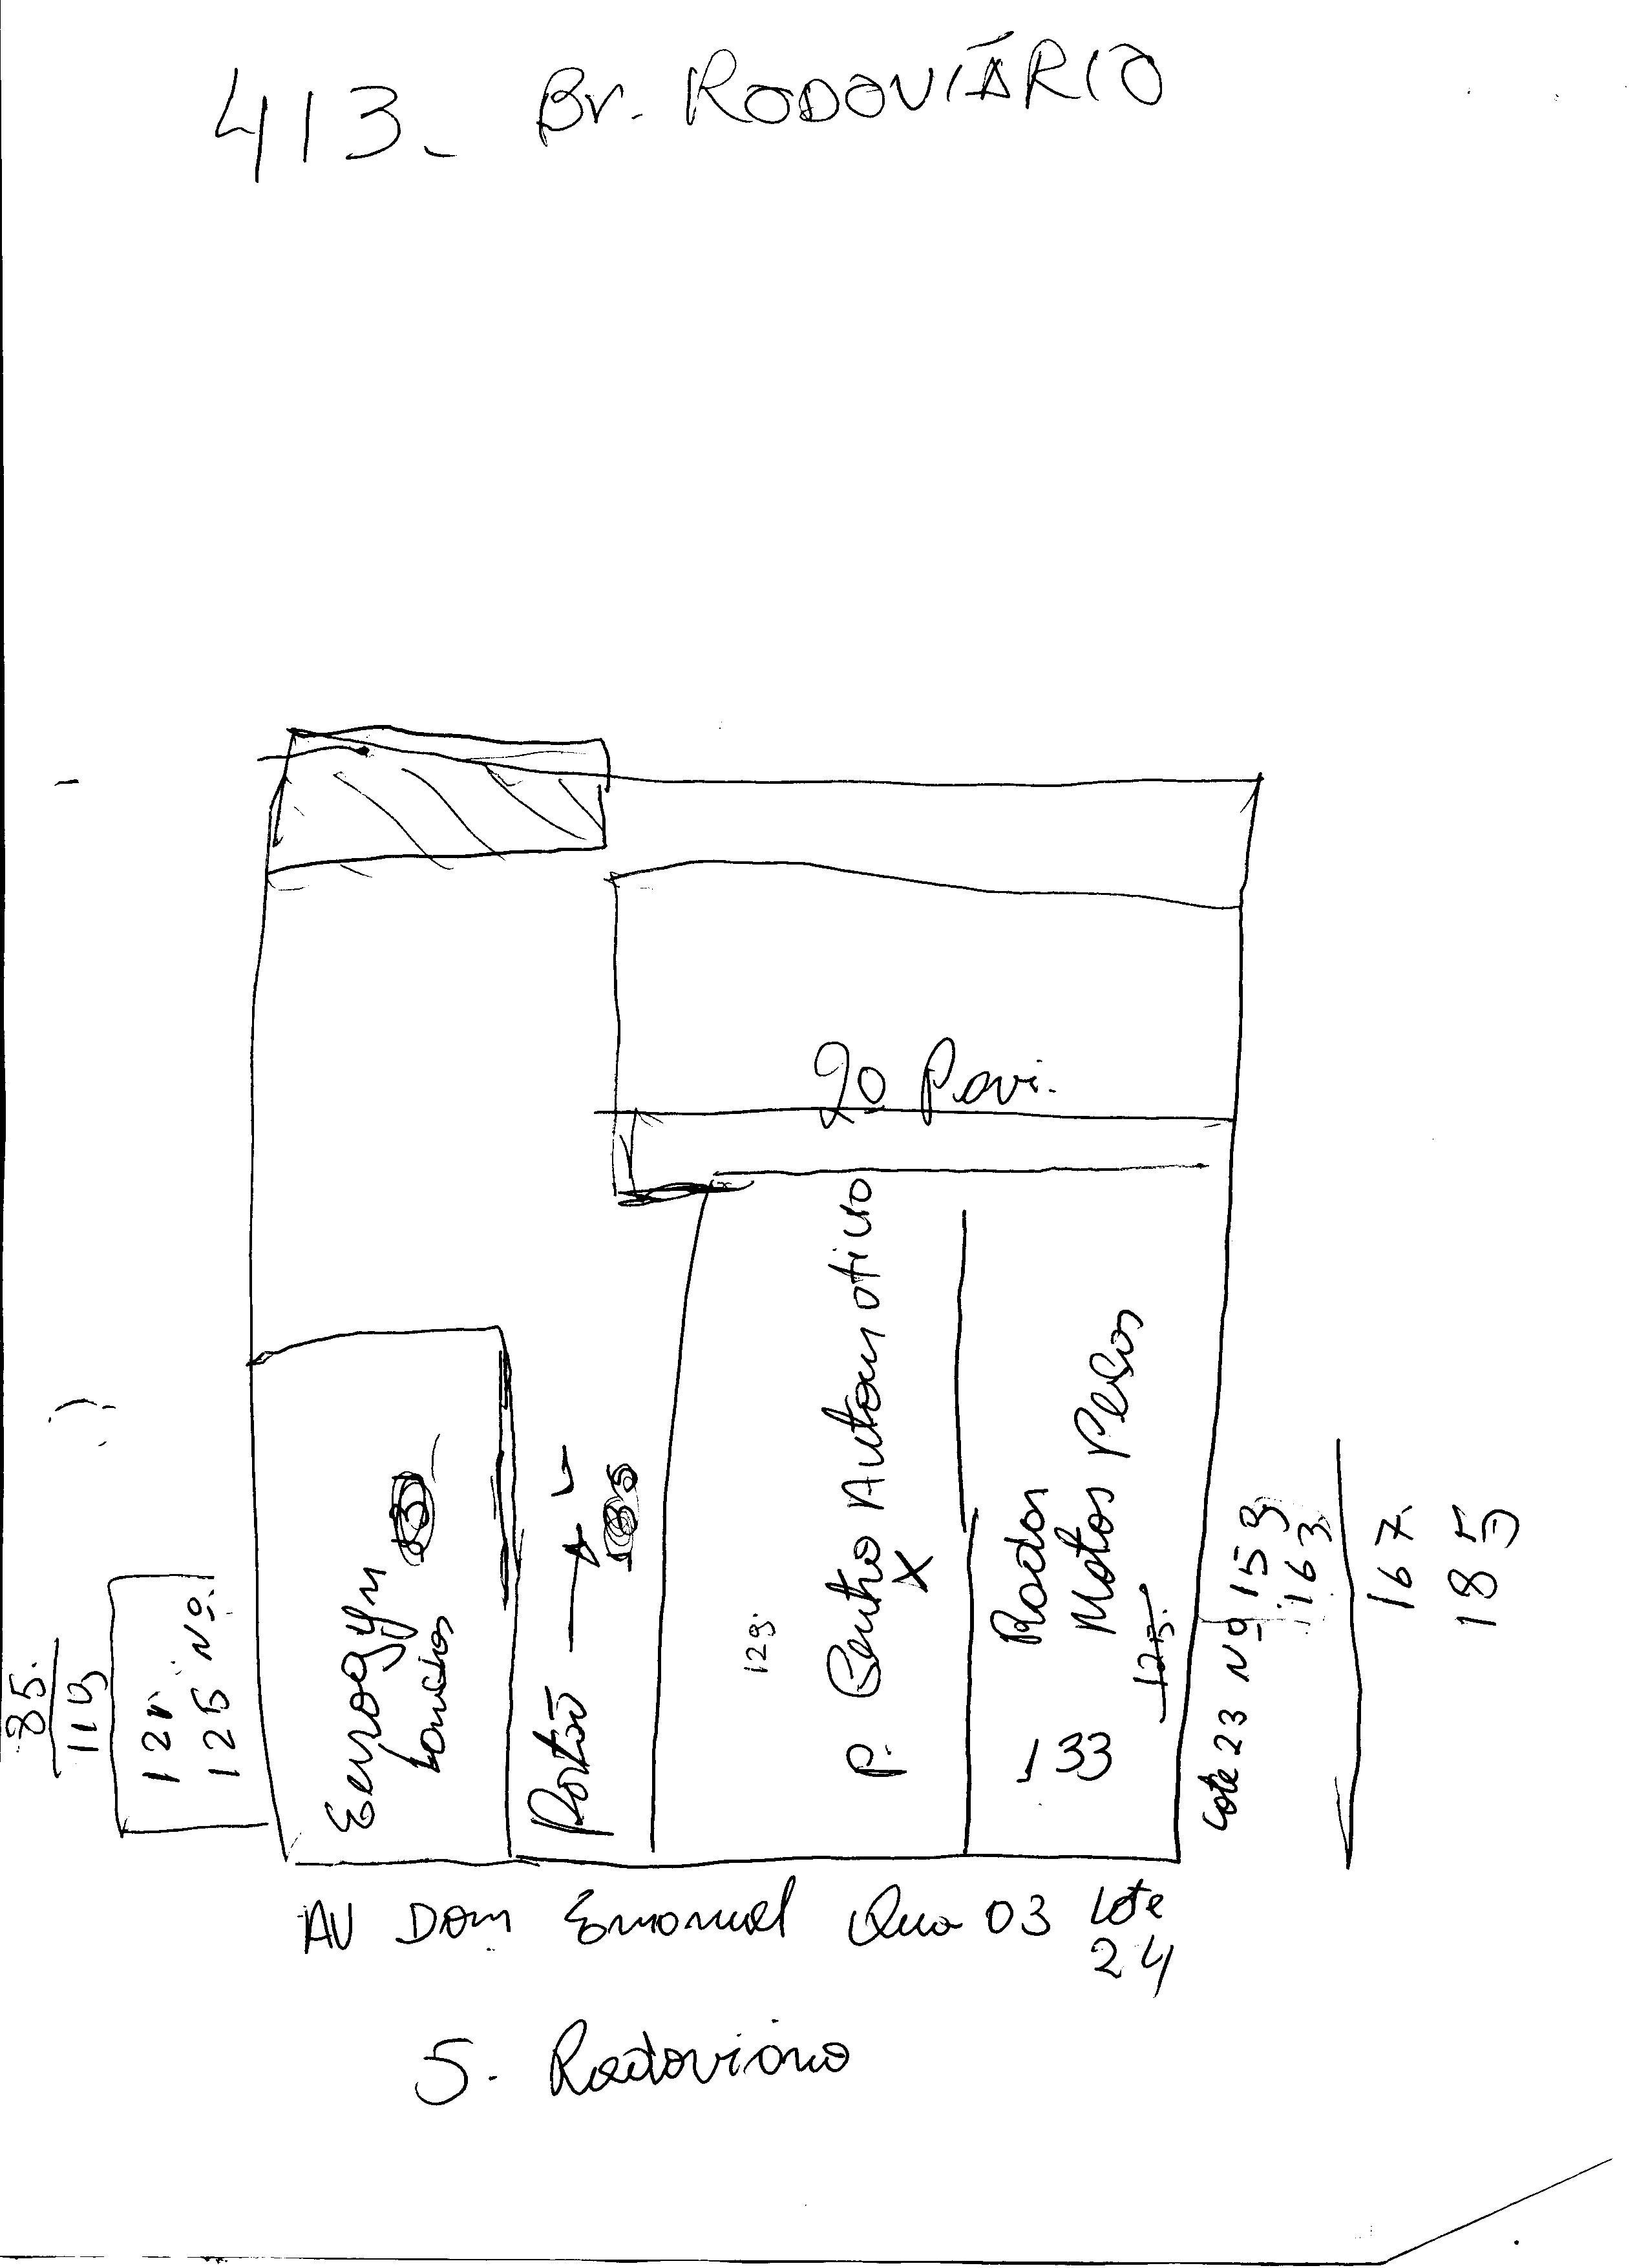 413- Br. RODOVIÁRIO
2º Pavi.
85.
119
121
125 Nº.
Portão
129
P. Centro Automotivo
X
Rodos
Motos Peças
133
Lote 23 Nº 159
163
167.
185
AV Dom Emanuel Qua 03 Lote
24
S. Rodoviário